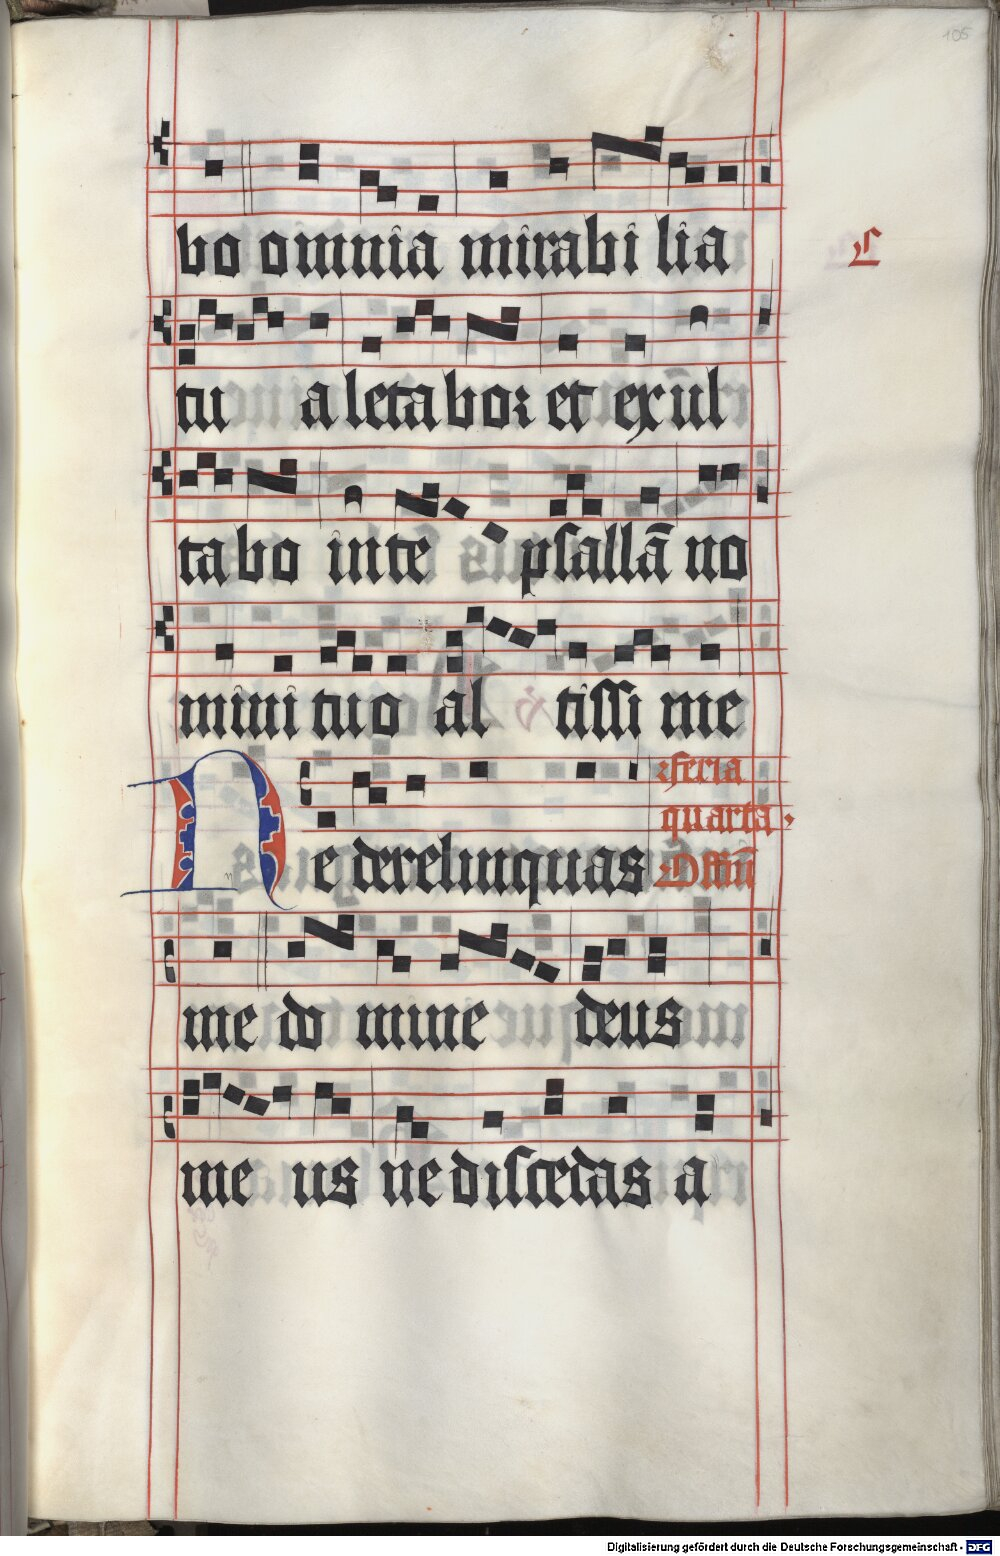 105
bo omnia mirabi lia
C
tu a letabor et exul
tabo in te psallā no
mini tuo al tissi me
feria
quarta
Ne derelinquas Offm̄
me do mine deus
me us ne discedas a
Digitalisierung gefördert durch die Deutsche Forschungsgemeinschaft - DFG